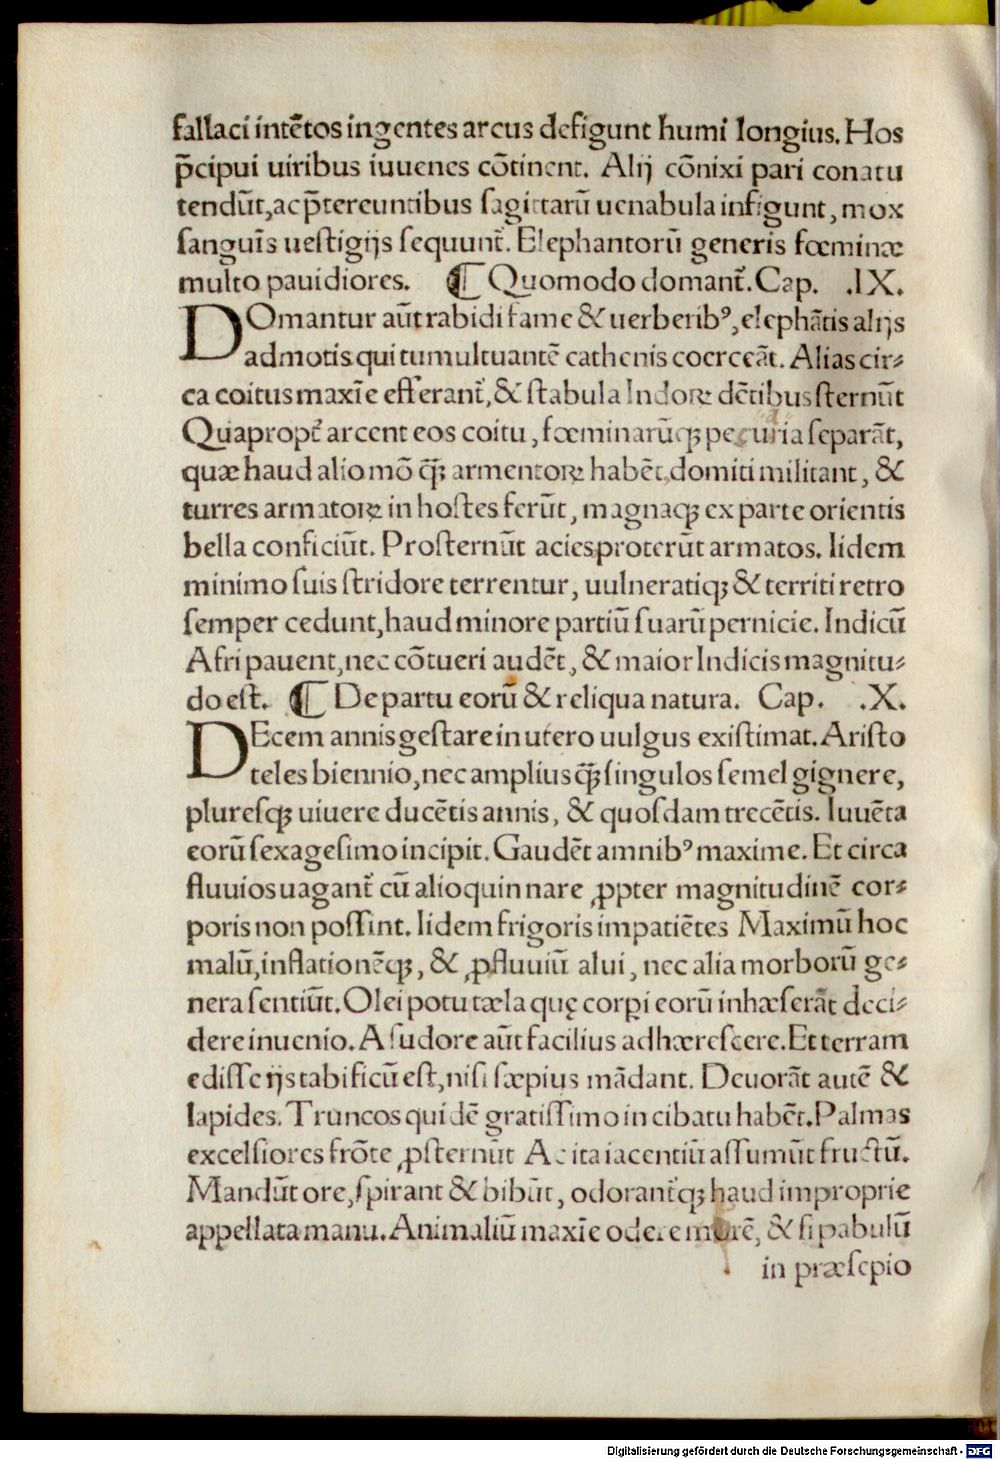 fallaci intētos ingentes arcus defigunt humi longius. Hos
p̄cipui uiribus iuuenes cōtinent. Alij cōnixi pari conatu
tendūt, ac p̄tereuntibus sagittarū uenabula infigunt, mox
sanguīs uestigijs sequunt᷑. Elephantorū generis fœminæ
multo pauidiores. ¶ Quomodo domant᷑. Cap. .IX.
DOmantur aūt rabidi fame & uerberibꝰ, elephātis alijs
admotis qui tumultuantē cathenis coerceāt. Alias cir-
ca coitus maxīe efferant᷑, & stabula Indoꝝ dētibus sternūt
Quapropt᷑ arcent eos coitu, fœminarūqꝫ pecuria separāt,
quæ haud alio mō q̄ꝫ armentoꝝ habēt. domiti militant, &
turres armatoꝝ in hostes ferūt, magnaqꝫ ex parte orientis
bella conficiūt. Prosternūt acies proterūt armatos. Iidem
minimo suis stridore terrentur, uulneratiqꝫ & territi retro
semper cedunt, haud minore partiū suarū pernicie. Indicū
Afri pauent, nec cōtueri audēt, & maior Indicis magnitu-
do est. ¶ De partu eorū & reliqua natura. Cap. .X.
DEcem annis gestare in utero uulgus existimat. Aristo
teles biennio, nec amplius q̄ꝫ singulos semel gignere,
pluresqꝫ uiuere ducētis annis, & quosdam trecētis. Iuuēta
eorū sexagesimo incipit. Gaudēt amnibꝰ maxime. Et circa
fluuios uagant᷑ cū alioquin nare ꝓpter magnitudinē cor-
poris non possint. Iidem frigoris impatiētes Maximū hoc
malū, inflationēqꝫ, & ꝓfluuiū alui, nec alia morborū ge-
nera sentiūt. Olei potu tæla quę corpi eorū inhæserāt deci-
dere inuenio. A sudore aūt facilius adhærescere. Et terram
edisse ijs tabificū est, nisi sæpius mādant. Deuorāt autē &
lapides. Truncos quidē gratissimo in cibatu habēt. Palmas
excelsiores frōte ꝓsternūt Ac ita iacentiū assumūt fructū.
Mandūt ore, spirant & bibūt, odorant᷑qꝫ haud improprie
appellata manu. Animaliū maxīe odere murē, & si pabulū
in præsepio
Digitalisierung gefördert durch die Deutsche Forschungsgemeinschaft - DFG